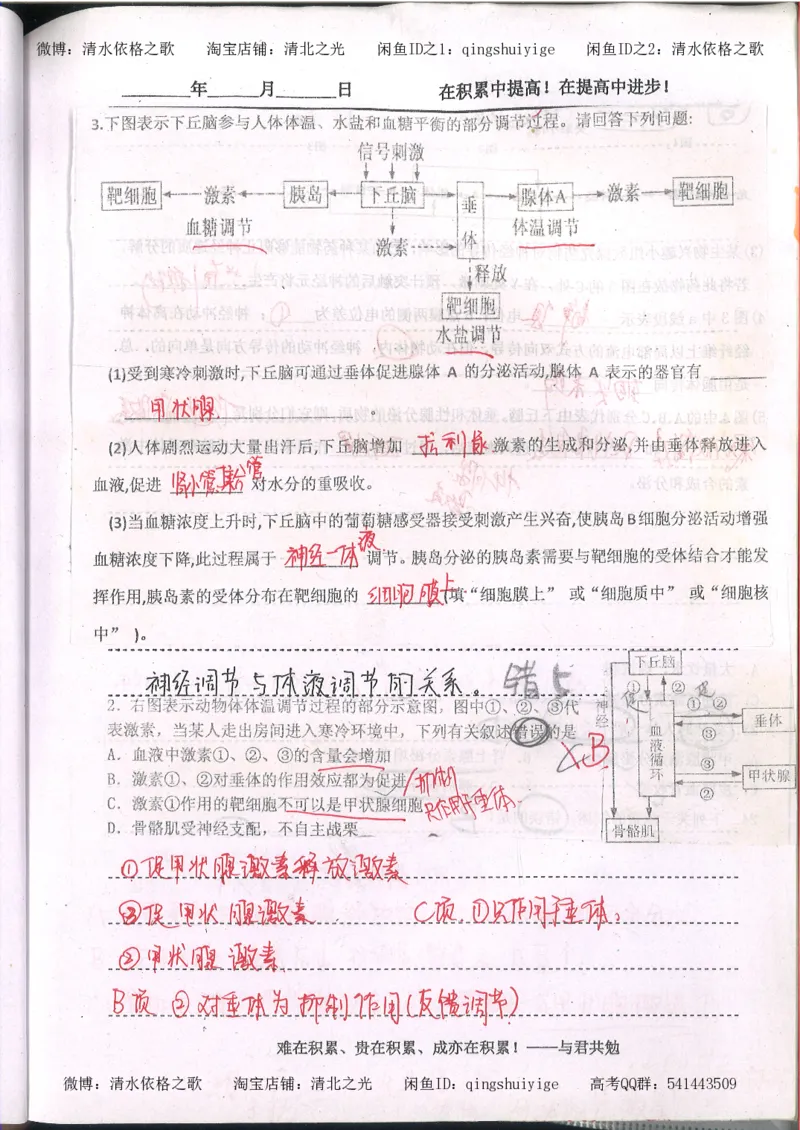 微博：清水依格之歌 淘宝店铺：清北之光 闲鱼ID之1：qingshuiyige 闲鱼ID之2：清水依格之歌
______年______月______日 在积累中提高！在提高中进步！
3.下图表示下丘脑参与人体体温、水盐和血糖平衡的部分调节过程。请回答下列问题:
信号刺激
靶细胞 激素 胰岛 下丘脑 垂体 腺体A 激素 靶细胞
血糖调节 体温调节
激素
释放
靶细胞
水盐调节
(1)受到寒冷刺激时,下丘脑可通过垂体促进腺体 A 的分泌活动,腺体 A 表示的器官有
甲状腺 。
(2)人体剧烈运动大量出汗后,下丘脑增加 抗利尿 激素的生成和分泌,并由垂体释放进入
血液,促进 肾小管集合管 对水分的重吸收。
(3)当血糖浓度上升时,下丘脑中的葡萄糖感受器接受刺激产生兴奋,使胰岛 B 细胞分泌活动增强
血糖浓度下降,此过程属于 神经—体液 调节。胰岛分泌的胰岛素需要与靶细胞的受体结合才能发
挥作用,胰岛素的受体分布在靶细胞的 细胞膜上 (填“细胞膜上” 或“细胞质中” 或“细胞核
中” )。
神经调节与体液调节的关系。 错与
2．右图表示动物体体温调节过程的部分示意图，图中①、②、③代
表激素，当某人走出房间进入寒冷环境中，下列有关叙述错误的是
B
A．血液中激素①、②、③的含量会增加
B．激素①、②对垂体的作用效应都为促进/抑制
C．激素①作用的靶细胞不可以是甲状腺细胞 只作用于垂体.
D．骨骼肌受神经支配，不自主战栗
下丘脑
① ②
促
神经
血液循环
① ②
垂体
③
③
甲状腺
②
骨骼肌
①促甲状腺激素释放激素
③促甲状腺激素 C项 ①只作用于垂体；
②甲状腺激素
B项 ②对垂体为抑制作用(反馈调节)
难在积累、贵在积累、成亦在积累！——与君共勉
微博：清水依格之歌 淘宝店铺：清北之光 闲鱼ID：qingshuiyige 高考QQ群：541443509